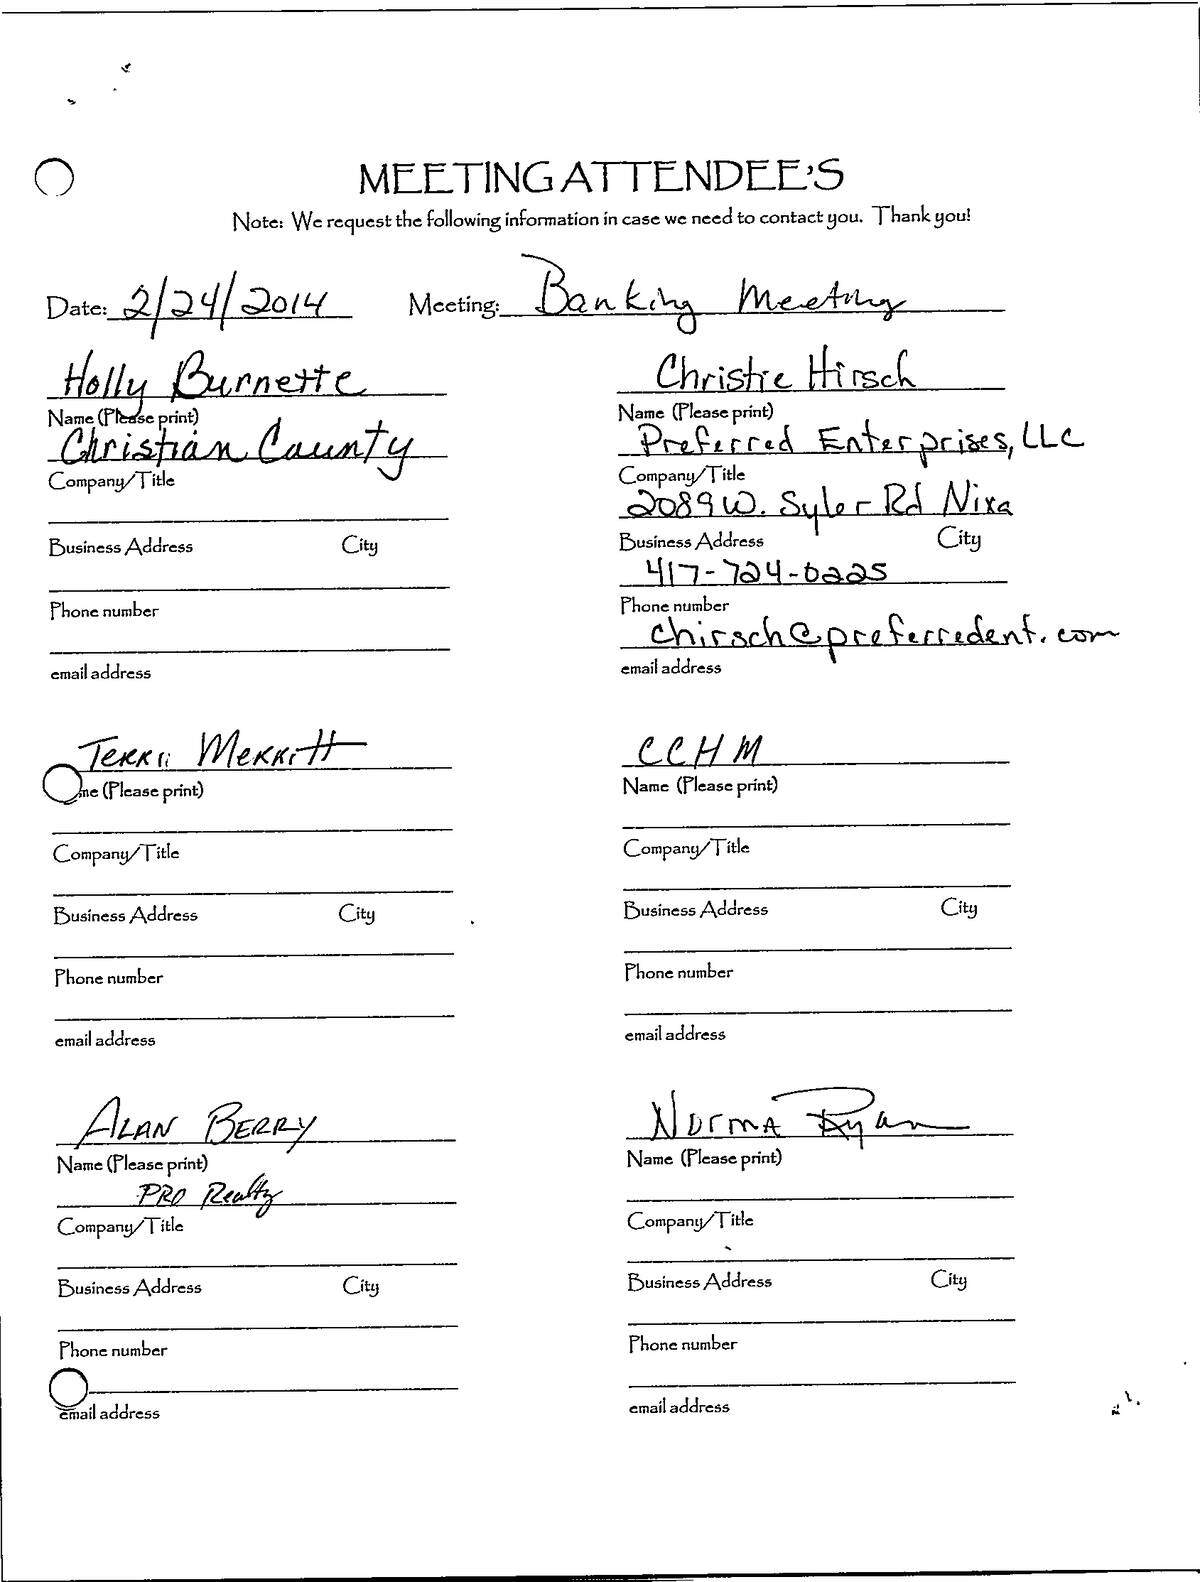 MEETING ATTENDEE'S
Note: We request the following information in case we need to contact you. Thank you!
Date: 2/24/2014 Meeting: Banking Meeting
Holly Burnette
Name (Please print)
Christian County
Company/Title
Business Address City
Phone number
email address
Christie Hirsch
Name (Please print)
Preferred Enterprises, LLC
Company/Title
2089 W. Syler Rd Nixa
Business Address City
417-724-0225
Phone number
chirsch@preferredent.com
email address
Terri Merritt
me (Please print)
Company/Title
Business Address City
Phone number
email address
CCHM
Name (Please print)
Company/Title
Business Address City
Phone number
email address
Alan Berry
Name (Please print)
PRO Realty
Company/Title
Business Address City
Phone number
email address
Norma Ryan
Name (Please print)
Company/Title
Business Address City
Phone number
email address